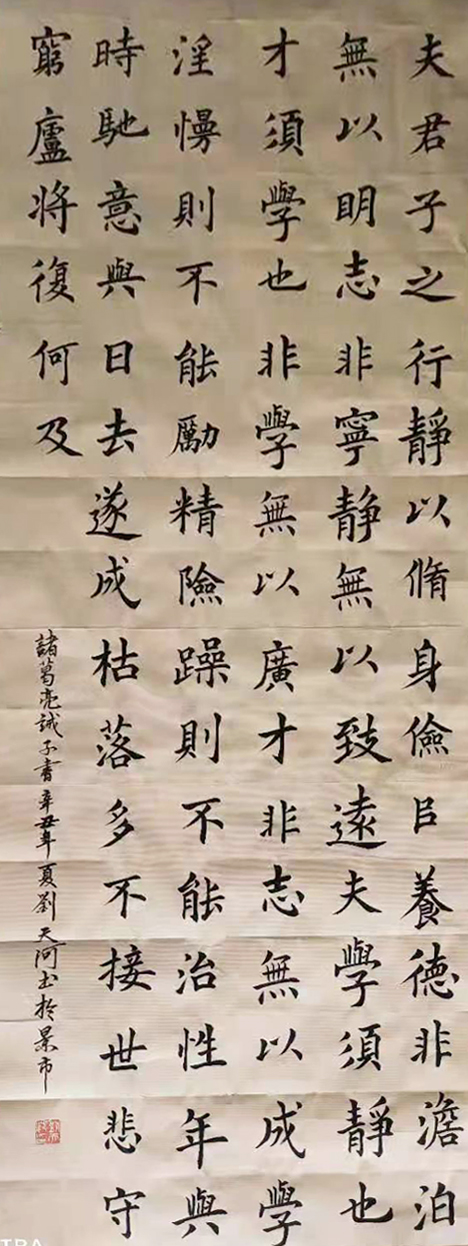 夫君子之行靜以脩身儉㠯養德非澹泊
無以明志非寧靜無以致遠夫學須靜也
才須學也非學無以廣才非志無以成學
淫慢則不能勵精險躁則不能治性年與
時馳意與日去遂成枯落多不接世悲守
窮廬將復何及
諸葛亮誡子書辛丑年夏劉天河書於景市